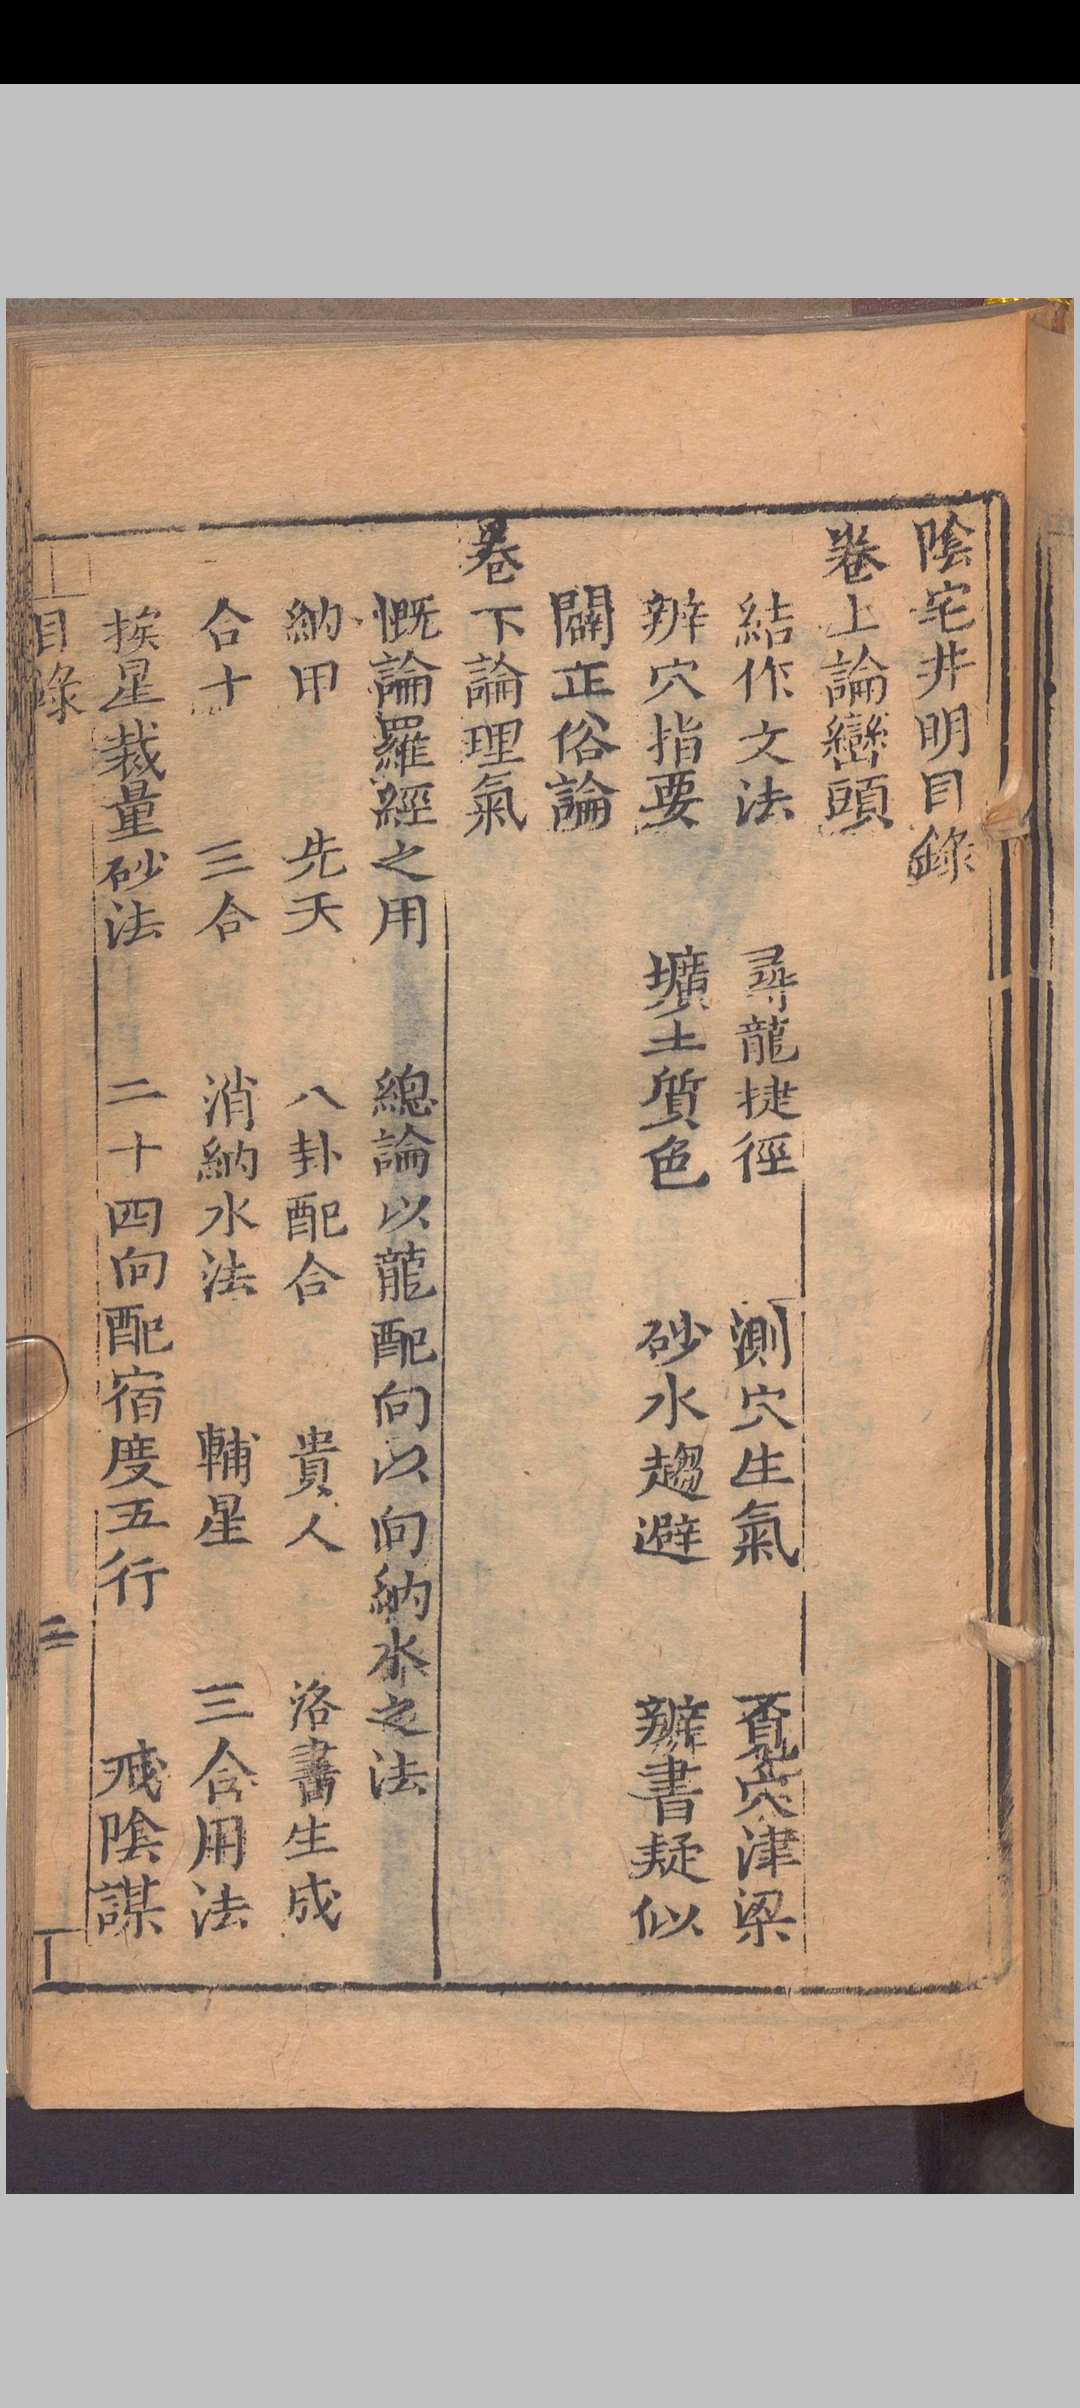 陰宅井明目錄
卷上論巒頭
結作文法　尋龍捷徑　測穴生氣　覔穴津梁
辨穴指要　壙土質色　砂水趨避　辦書疑似
闢正俗論
卷下論理氣
慨論羅經之用　總論以龍配向以向納水之法
納甲　先天　八卦配合　貴人　洛書生成
合十　三合　消納水法　輔星　三合用法
挨星裁量砂法　二十四向配宿度五行　戒陰謀
目錄　二